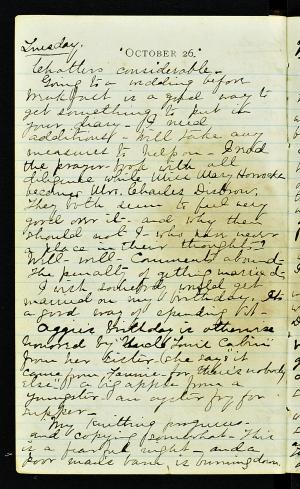 Tuesday.
OCTOBER 26.
Chatters considerable.
Going to a wedding before
breakfast is a good way to
get something to put in
your diary. I need
additions. Will take any
measures to help on. I read
the prayer book with all
diligence while Miss Mary
becomes Mrs. Charles
They both seem to feel very
good over it - and why they
should not I - who has never
a place in their thoughts -!
Well - well - comments abound -
the penalty of getting married -
I wish somebody would get
married on my birthday. It's
a good way of spending it -
Aggie's birthday is otherwise
honored by "Uncle
from her sister (she says) it
came from Fannie - for there's nobody
else". a big apple from a
youngster - an oyster fry for
supper -
My knitting progresses -
and copying somewhat - This
is a fearful night - and a
poor man's barn is burning down.